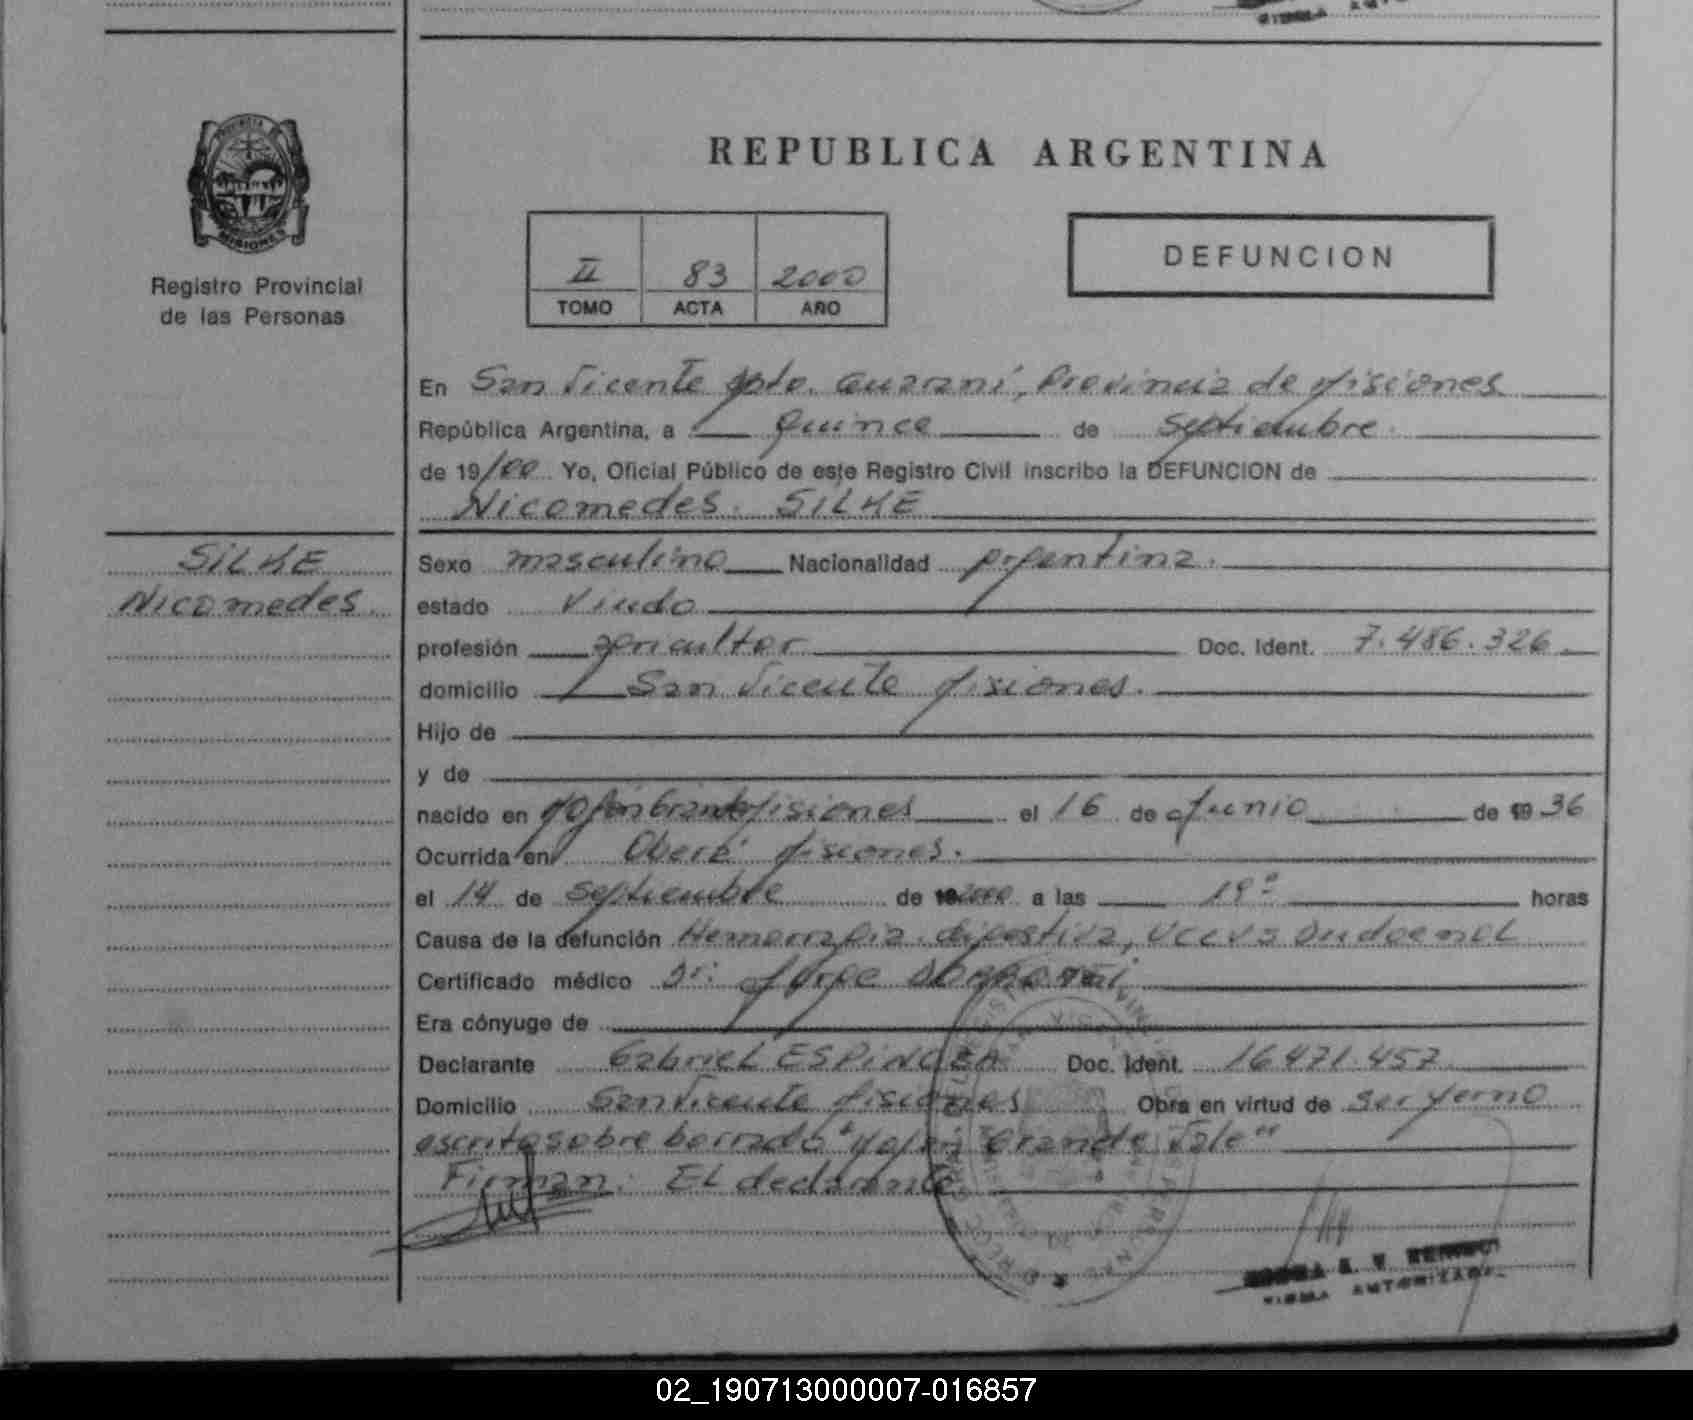 REPUBLICA ARGENTINA
PROVINCIA DE
MISIONES
Registro Provincial
de las Personas
II 83 2000
TOMO ACTA AÑO
DEFUNCION
En San Vicente Dpto. Guaraní, Provincia de Misiones
República Argentina, a quince de Septiembre
de 19/00 Yo, Oficial Público de este Registro Civil inscribo la DEFUNCION de
Nicomedes SILKE
SILKE
Nicomedes
Sexo masculino Nacionalidad Argentina.
estado Viudo
profesión agricultor Doc. Ident. 7.486.326
domicilio San Vicente Misiones.
Hijo de
y de
nacido en Mojón Grande Misiones el 16 de Junio de 19 36
Ocurrida en Oberá Misiones.
el 14 de Septiembre de 19 2000 a las 19º horas
Causa de la defunción Hemorragia digestiva,
Certificado médico Dr. Jorge
Era cónyuge de
Declarante Gabriel ESPINOZA Doc. Ident. 16.471.457
Domicilio San Vicente Misiones Obra en virtud de ser yerno
escrito sobre borrado "Mojón Grande Vale"
Firman: El declarante
FIRMA AUTORIZADA
02_190713000007-016857